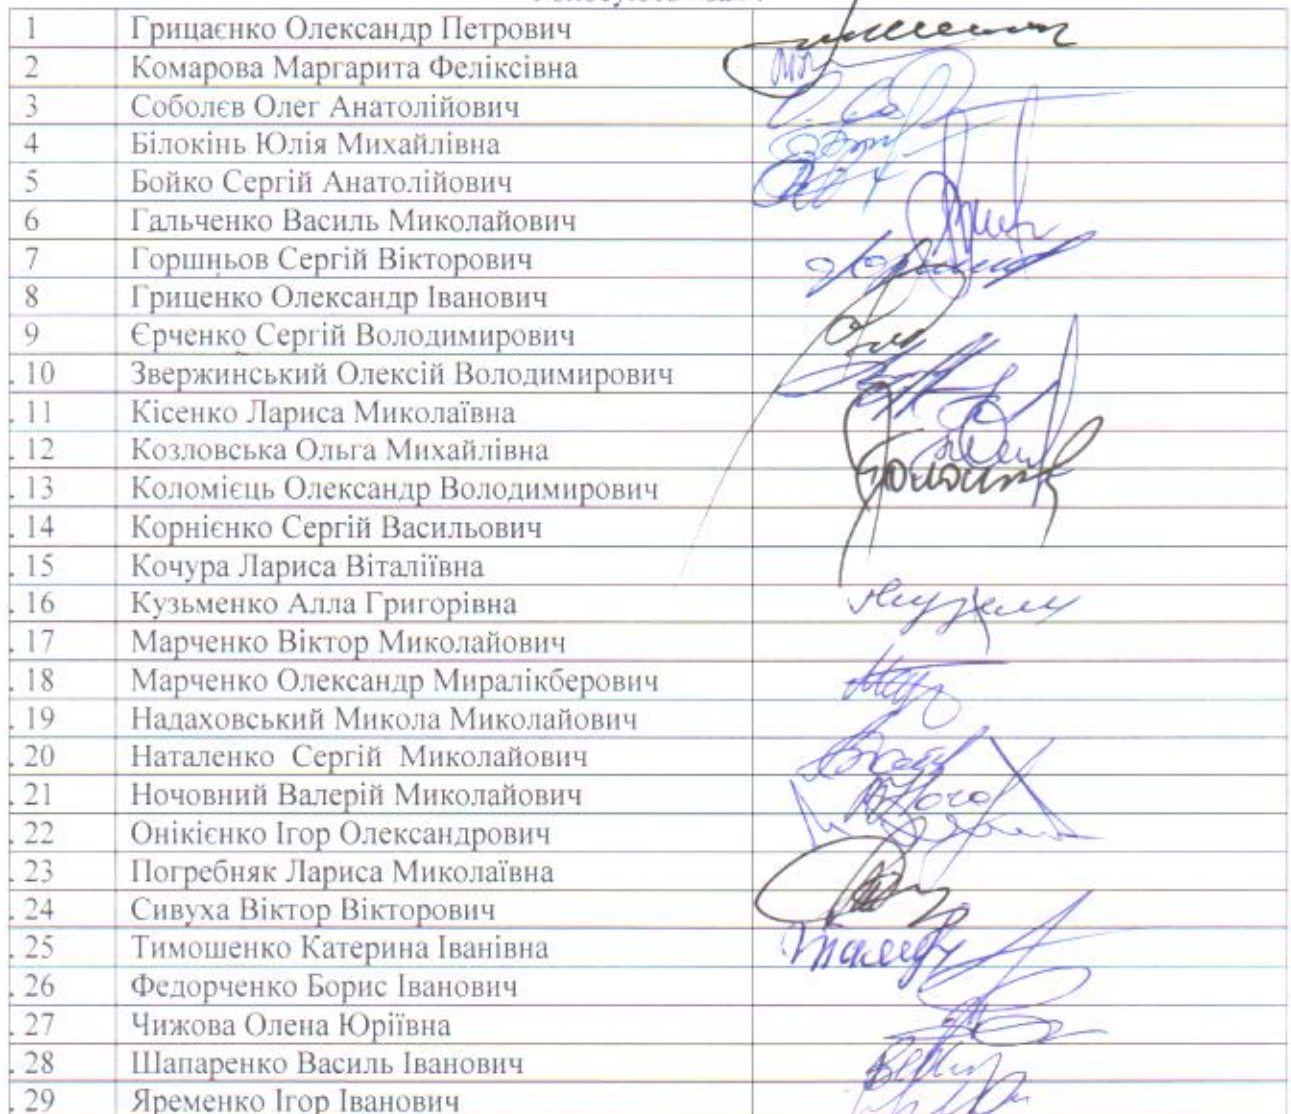 1 Грицаєнко Олександр Петрович
2 Комарова Маргарита Феліксівна
3 Соболєв Олег Анатолійович
4 Білокінь Юлія Михайлівна
5 Бойко Сергій Анатолійович
6 Гальченко Василь Миколайович
7 Горшньов Сергій Вікторович
8 Гриценко Олександр Іванович
9 Єрченко Сергій Володимирович
. 10 Звержинський Олексій Володимирович
. 11 Кісенко Лариса Миколаївна
. 12 Козловська Ольга Михайлівна
. 13 Коломієць Олександр Володимирович
. 14 Корнієнко Сергій Васильович
. 15 Кочура Лариса Віталіївна
. 16 Кузьменко Алла Григорівна
. 17 Марченко Віктор Миколайович
. 18 Марченко Олександр Миралікберович
. 19 Надаховський Микола Миколайович
. 20 Наталенко Сергій Миколайович
. 21 Ночовний Валерій Миколайович
. 22 Онікієнко Ігор Олександрович
. 23 Погребняк Лариса Миколаївна
. 24 Сивуха Віктор Вікторович
. 25 Тимошенко Катерина Іванівна
. 26 Федорченко Борис Іванович
. 27 Чижова Олена Юріївна
. 28 Шапаренко Василь Іванович
. 29 Яременко Ігор Іванович